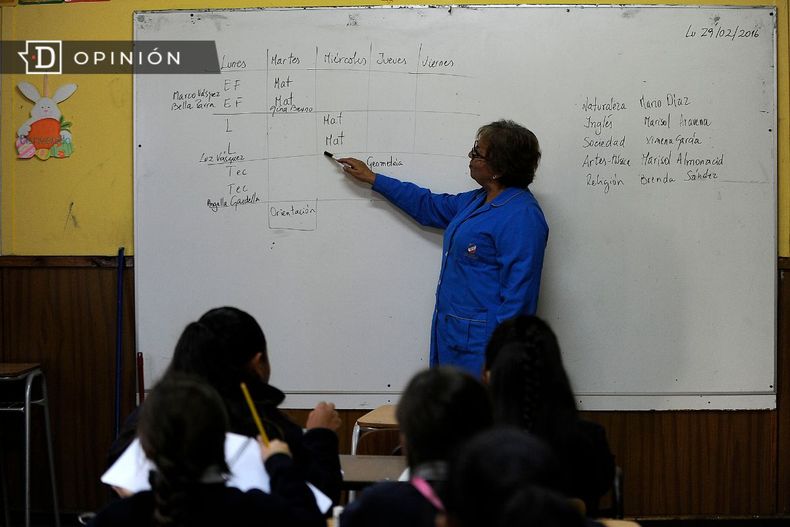 D OPINIÓN
Lu 29/02/2016
Lunes Martes Miércoles Jueves Viernes
EF Mat
Marco Vásquez
Bella Parra EF Mat
L Mat
L Mat
Luz Vásquez
Tec Geometría
Tec
Orientación
Naturaleza Mario Díaz
Inglés Marisol Aravena
Sociedad Ximena García
Artes-Música Marisol Almonacid
Religión Brenda Sández